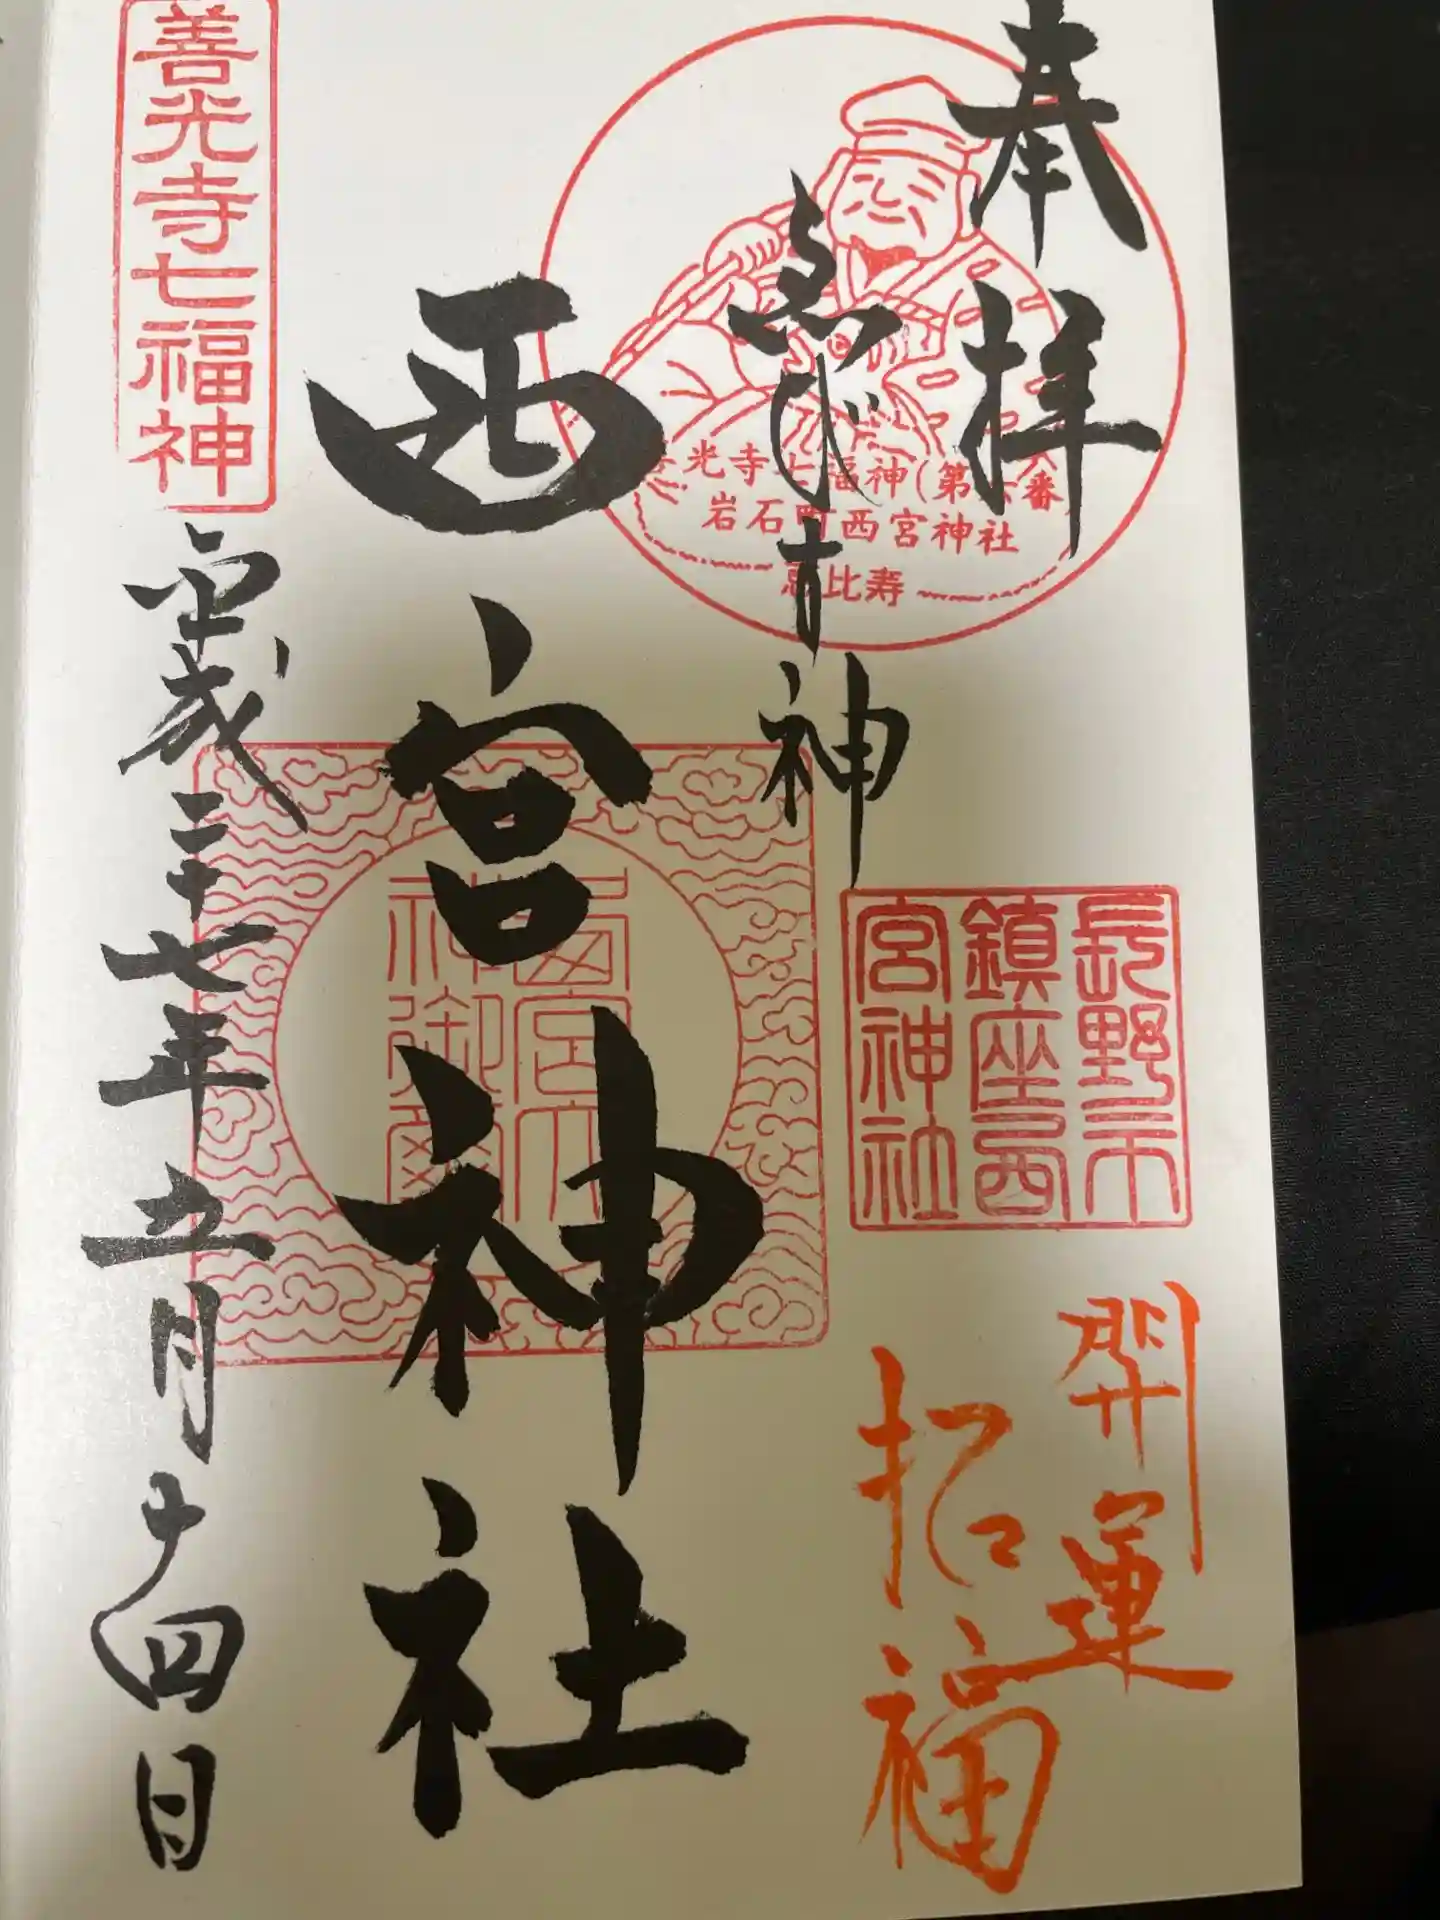 奉拝
ゑびす神
善光寺七福神(第六番)
岩石町西宮神社
恵比寿
長野市
鎮座西
宮神社
開運
招福
西宮神社
善光寺七福神
平成二十七年五月十四日